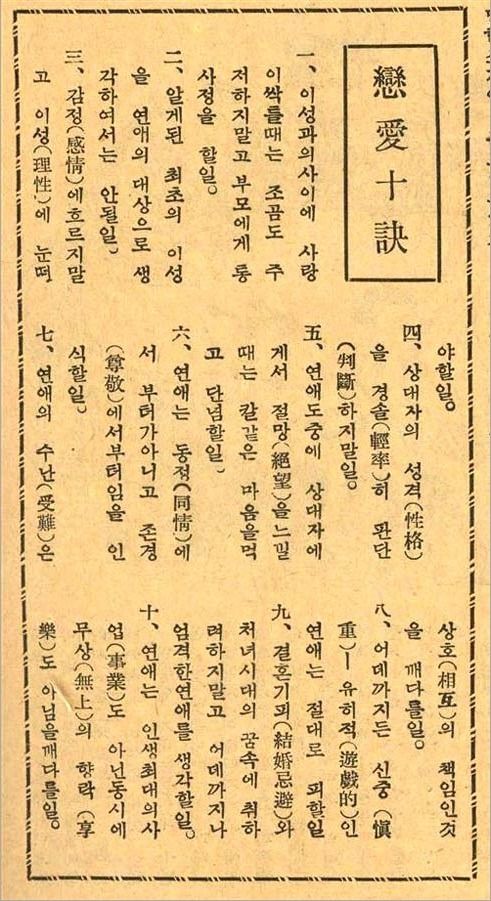 戀愛十訣
一、이성과의사이에 사랑
이싹틀때는 조곰도 주
저하지말고 부모에게 통
사정을 할일。
二、알게된 최초의 이성
을 연애의 대상으로 생
각하여서는 안될일。
三、감정(感情)에흐르지말
고 이성(理性)에 눈떠
야할일。
四、상대자의 성격(性格)
을 경솔(輕率)히 판단
(判斷)하지말일。
五、연애도중에 상대자에
게서 절망(絕望)을느낄
때는 칼같은 마음을먹
고 단념할일。
六、연애는 동정(同情)에
서 부터가아니고 존경
(尊敬)에서부터임을 인
식할일。
七、연애의 수난(受難)은
상호(相互)의 책임인것
을 깨다를일。
八、어데까지든 신중(愼
重)ー유히적(遊戱的)인
연애는 절대로 피할일
九、결혼기피(結婚忌避)와
처녀시대의 꿈속에 취하
려하지말고 어데까지나
엄격한연애를 생각할일。
十、연애는 인생최대의사
업(事業)도 아닌동시에
무상(無上)의 향락(享
樂)도 아님을깨다를일。